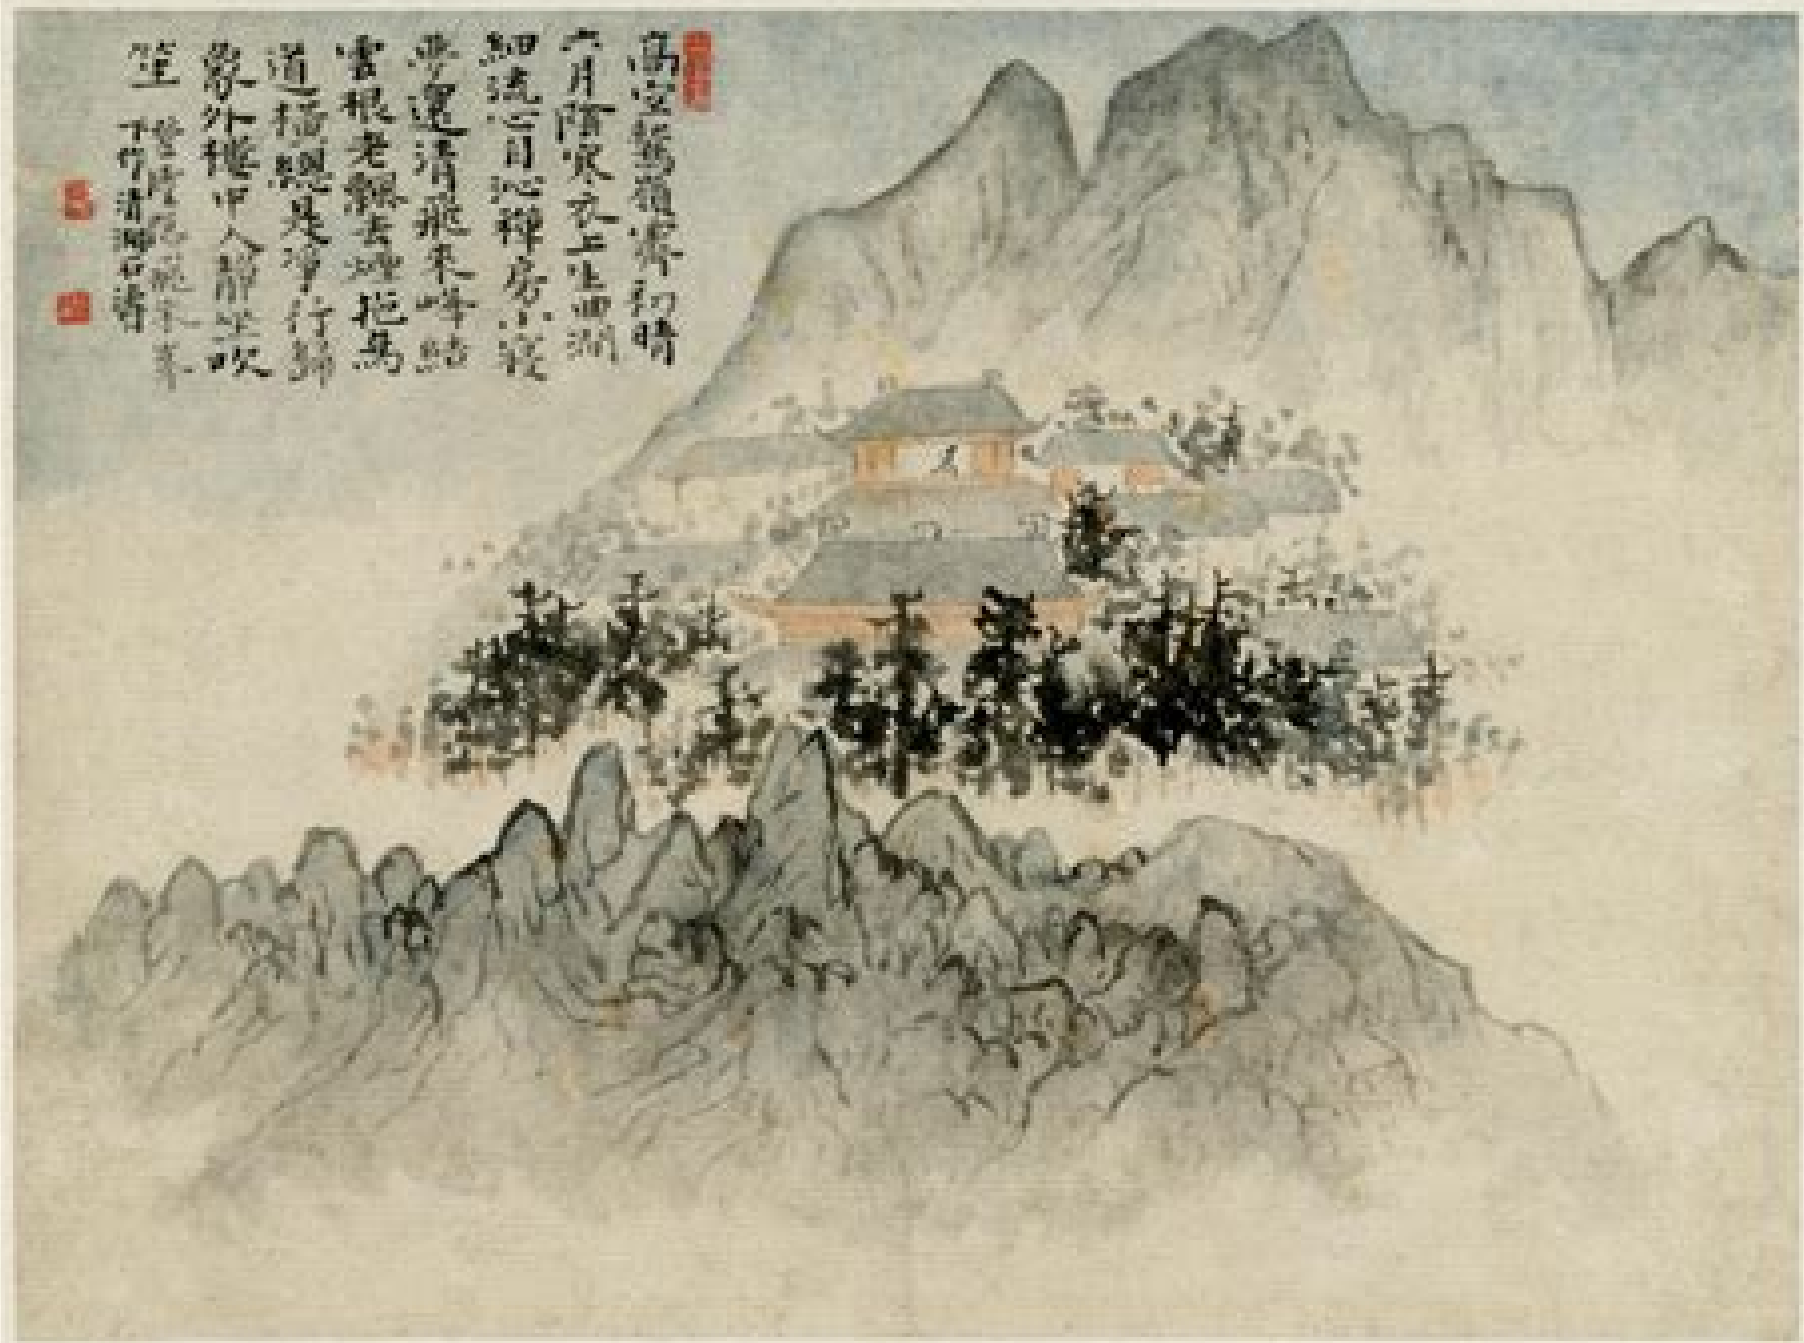 高空鷲嶺霽初晴
六月陰寒衣上生曲澗
細流心目沁禪房小寢
夢還清飛來峰結
雲根老飄去煙拖萬
道橫總是淨行歸
象外 中人靜坐吹
笙
靈隱 飛來峯
下作清湘石濤